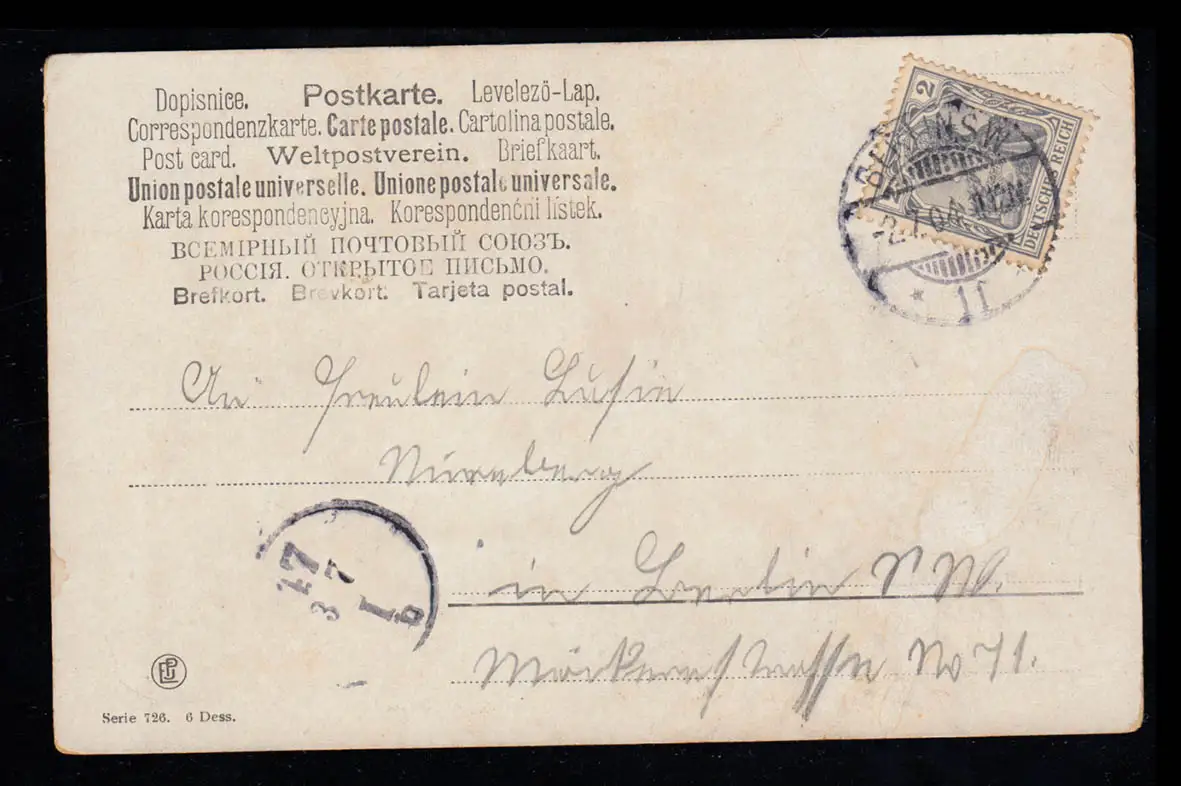 Dopisnice. Postkarte. Levelezö-Lap.
Correspondenzkarte. Carte postale. Cartolina postale.
Post card. Weltpostverein. Briefkaart.
Union postale universelle. Unione postale universale.
Karta korespondencyjna. Korespondenćni lístek.
ВСЕМІРНЫЙ ПОЧТОВЫЙ СОЮЗЪ.
РОССІЯ. ОТКРЫТОЕ ПИСЬМО.
Brefkort. Brevkort. Tarjeta postal.
2
DEUTSCHES REICH
BERLIN S.W.
* 11
An Fräulein
Nürnberg
in Berlin S.W.
Möckernstrasse No 71.
17
3 7
I
PGL
Serie 726. 6 Dess.